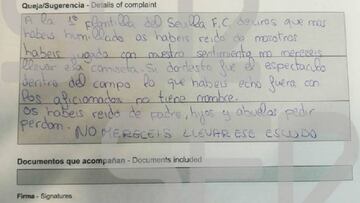 Queja/Sugerencia - Details of complaint
A la 1ª plantilla del Sevilla F.C. deciros que nos
habeis humillado os habeis reido de nosotros
habeis jugado con nuestro sentimiento no mereceis
llevar esa camiseta. Si dantesco fue el espectaculo
dentro del campo lo que habeis echo fuera con
los aficionados no tiene nombre.
Os habeis reido de padre, hijos y abuelos pedir
perdon. NO MERECEIS LLEVAR ESE ESCUDO
Documentos que acompañan - Documents included
Firma - Signatures